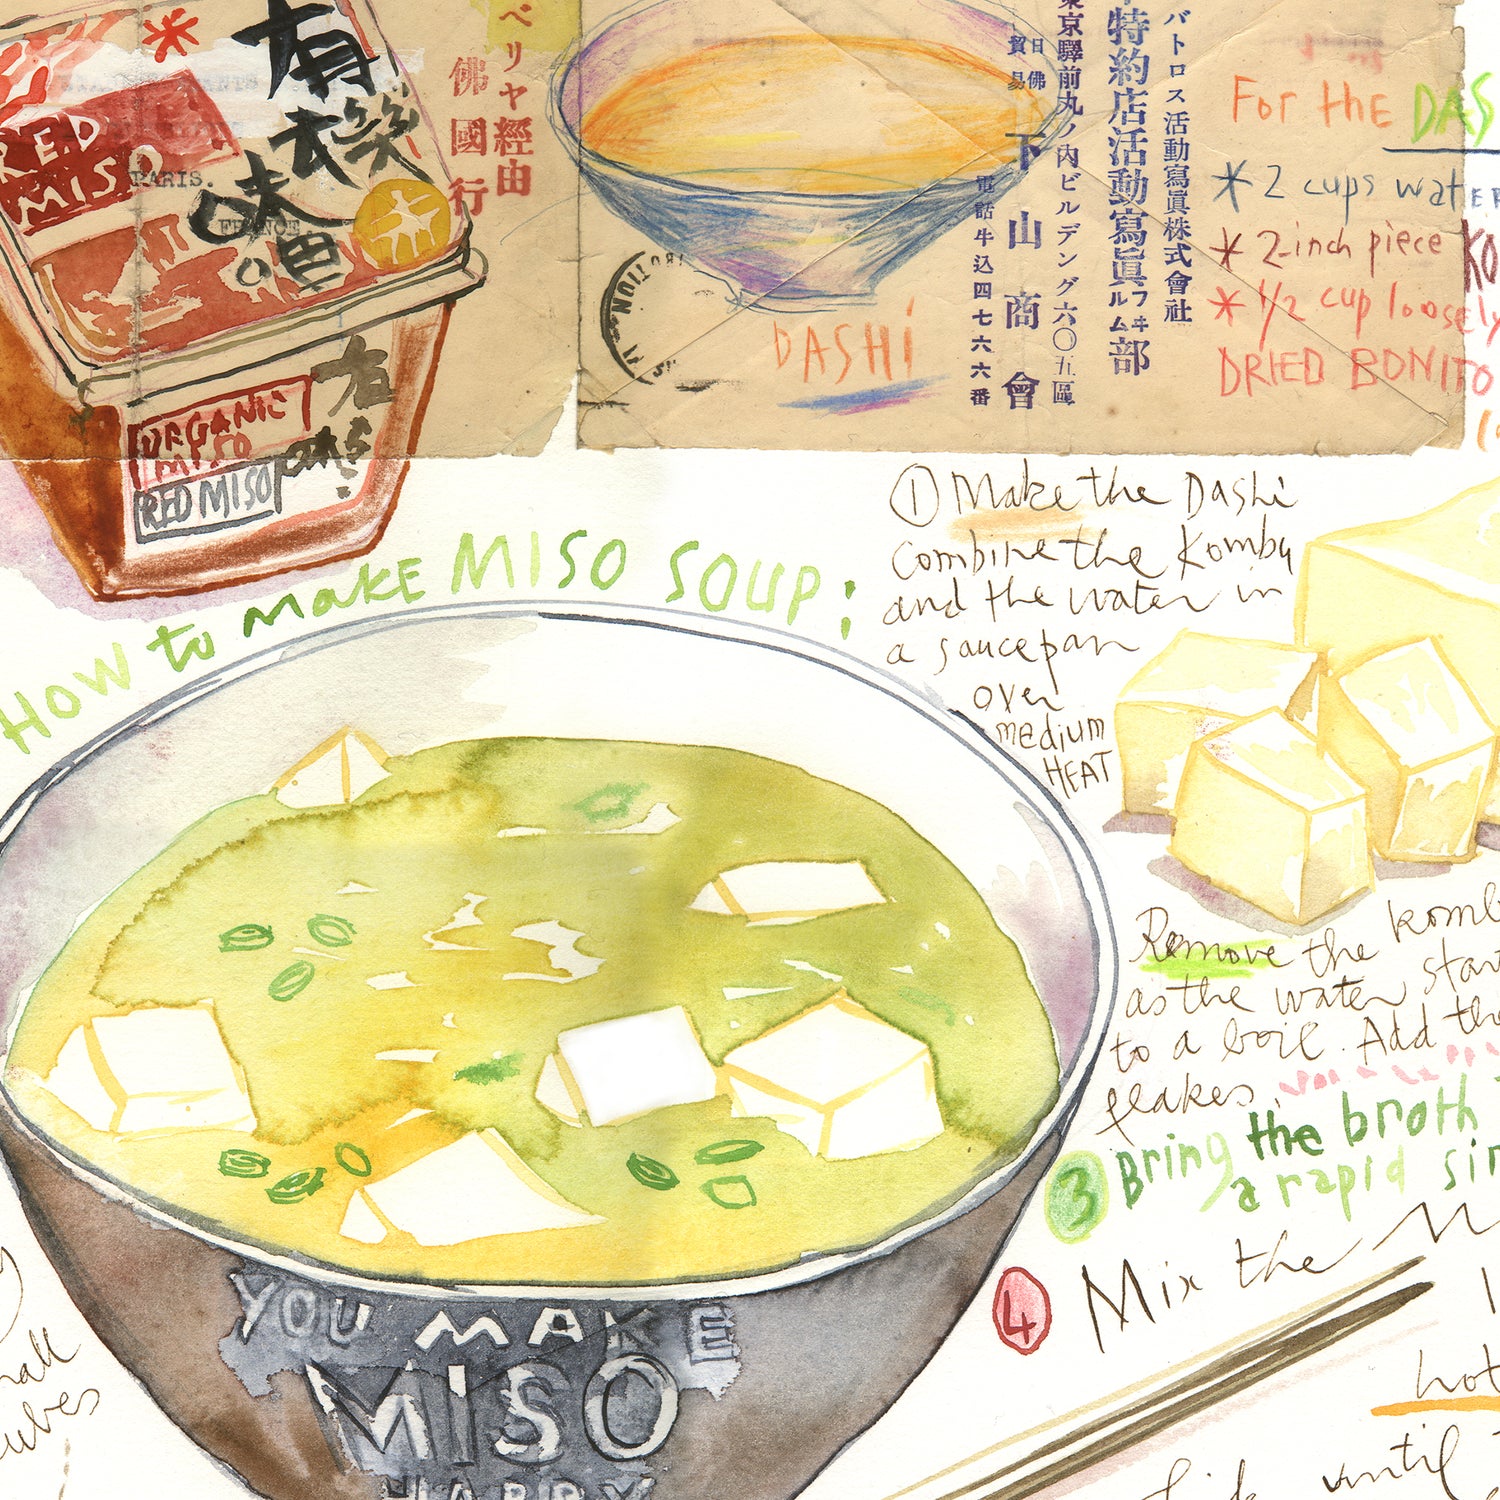 有機
味噌
RED
MISO
PARIS.
FRANCE.
有
ORGANIC
MISO
RED MISO
ベリヤ經由
佛國行
DASHi
バトロス活動寫眞株式會社
特約店活動寫眞フヰルム部
東京驛前丸ノ內ビルデング六〇五區
日佛
貿易
下山商會
電話牛込四七六六番
For the DAS
* 2 cups water
* 2-inch piece KO
* 1/2 cup loosely
DRIED BONITO
HOW to makE MISO SOUP:
① Make the Dashi
combine the Kombu
and the water in
a saucepan
over
medium
HEAT
Remove the komb
as the water start
to a boil. Add the
flakes.
3 Bring the broth
a rapid sim
4 Mix the M
hot
until
YOU MAKE
MISO
HAPPY